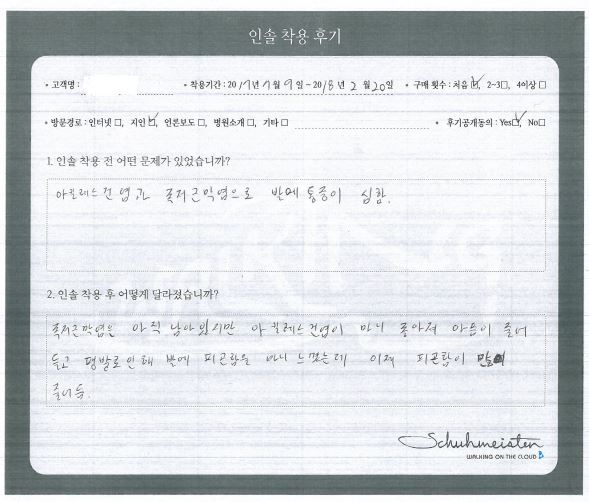 인솔 착용 후기
• 고객명 : • 착용기간 : 2017년 7월 9일 ~ 2018년 2월 20일 • 구매 횟수 : 처음☑, 2~3□, 4이상□
• 방문경로 : 인터넷□, 지인☑, 언론보도□, 병원소개□, 기타□ • 후기공개동의 : Yes☑, No□
1. 인솔 착용 전 어떤 문제가 있었습니까?
아킬레스건염과 족저근막염으로 발에 통증이 심함.
2. 인솔 착용 후 어떻게 달라졌습니까?
족저근막염은 아직 남아있지만 아킬레스건염이 많이 좋아져 아픔이 줄어
들고 평발로 인해 발에 피곤함을 많이 느꼈는데 이제 피곤함이 많이
줄어듬.
Schuhmeister
WALKING ON THE CLOUD